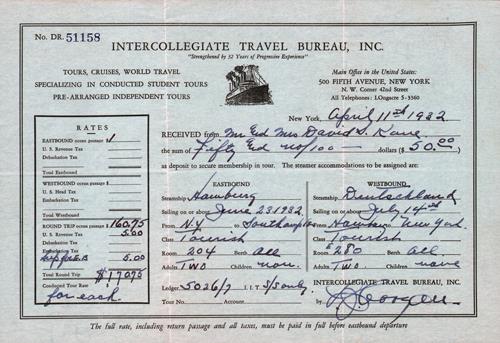 No. DR. 51158
INTERCOLLEGIATE TRAVEL BUREAU, INC.
"Strengthened by 32 Years of Progressive Experience"
TOURS, CRUISES, WORLD TRAVEL
SPECIALIZING IN CONDUCTED STUDENT TOURS
PRE-ARRANGED INDEPENDENT TOURS
Main Office in the United States:
500 FIFTH AVENUE, NEW YORK
N. W. Corner 42nd Street
All Telephones: LOngacre 5-3360
New York, April 11th 1932
RECEIVED from Mr Ed Mrs David S. Kane
the sum of Fifty Ed no/100 dollars ($ 50.00
as deposit to secure membership in tour. The steamer accommodations to be assigned are:
RATES
EASTBOUND ocean passage $
U. S. Revenue Tax
Debarkation Tax
Total Eastbound
WESTBOUND ocean passage $
U. S. Head Tax
Embarkation Tax
Total Westbound
ROUND TRIP ocean passage $ 160.75
U. S. Revenue Tax 5.00
Debarkation Tax
Embarkation Tax
5.00
Total Round Trip $170.75
Conducted Tour Rate
for each.
EASTBOUND
Steamship Hamburg
Sailing on or about June 23 1932
From N.Y. to Southampton
Class Tourist
Room 204 Berth All
Adults Two Children non.
WESTBOUND
Steamship Deutschland
Sailing on or about July 14th
From Hamburg to New York
Class Tourist
Room 280 Berth All
Adults Two Children none
Ledger 5026/7 I. I. T. S/S only
Tour No. Account
INTERCOLLEGIATE TRAVEL BUREAU, INC.
by
The full rate, including return passage and all taxes, must be paid in full before eastbound departure